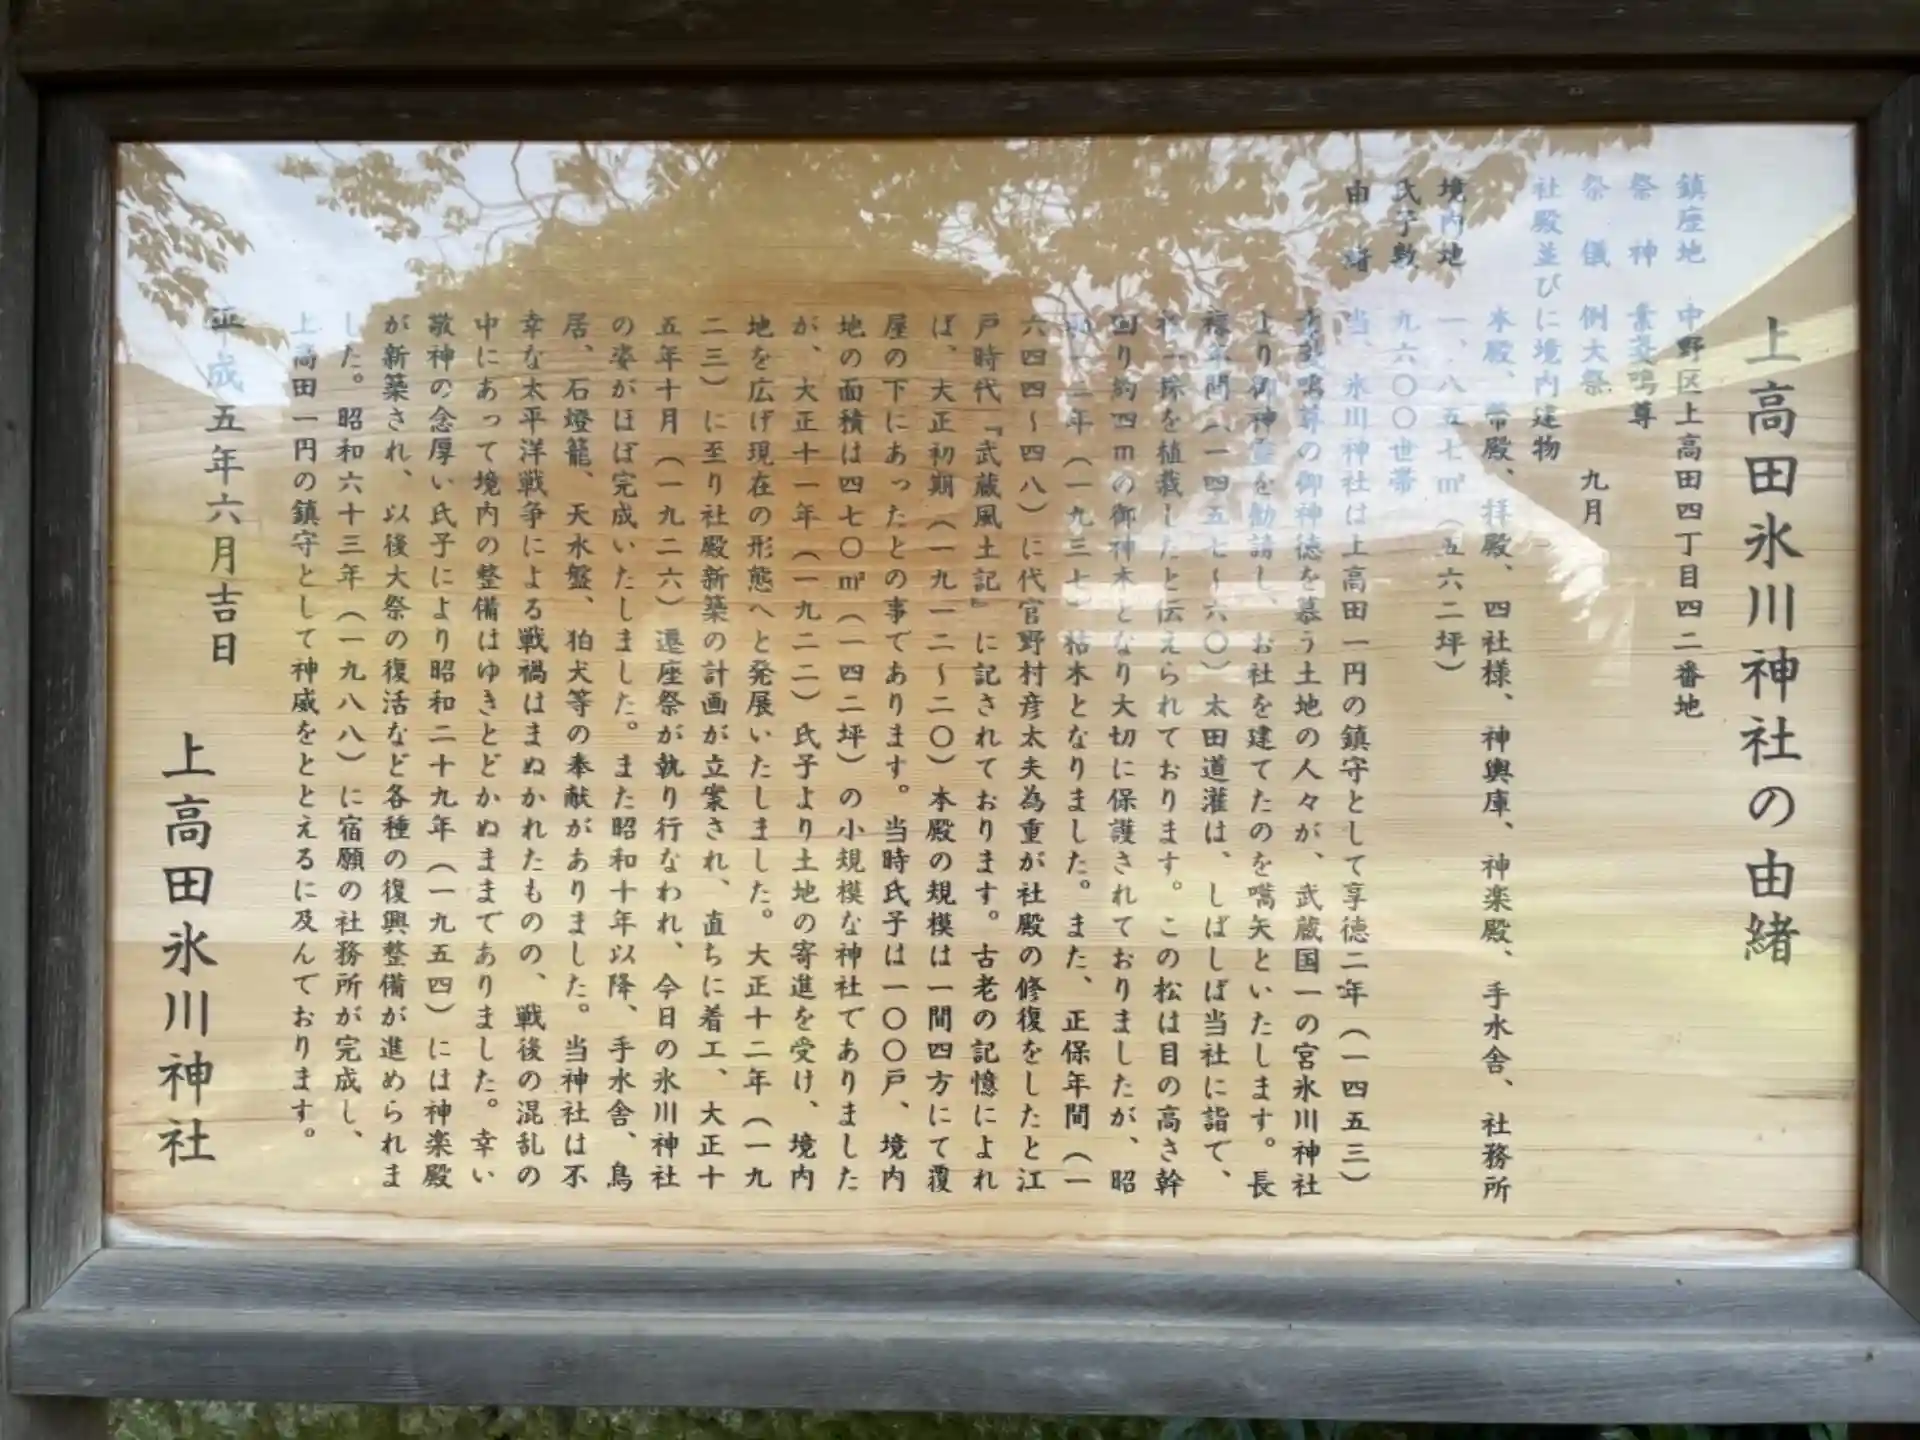 上高田氷川神社の由緒
鎮座地　中野区上高田四丁目四二番地
祭　神　素戔嗚尊
祭　儀　例大祭　九月
社殿並びに境内建物
本殿、幣殿、拝殿、四社様、神輿庫、神楽殿、手水舎、社務所
境内地　一、八五七㎡（五六二坪）
氏子数　九六〇〇世帯
由　緒　当、氷川神社は上高田一円の鎮守として享徳二年（一四五三）
素戔嗚尊の御神徳を慕う土地の人々が、武蔵国一の宮氷川神社
より御神霊を勧請し、お社を建てたのを嚆矢といたします。長
禄年間（一四五七～六〇）太田道灌は、しばしば当社に詣で、
松一株を植栽したと伝えられております。この松は目の高さ幹
回り約四ｍの御神木となり大切に保護されておりましたが、昭
和十二年（一九三七）枯木となりました。また、正保年間（一
六四四～四八）に代官野村彦太夫為重が社殿の修復をしたと江
戸時代『武蔵風土記』に記されております。古老の記憶によれ
ば、大正初期（一九一二～二〇）本殿の規模は一間四方にて覆
屋の下にあったとの事であります。当時氏子は一〇〇戸、境内
地の面積は四七〇㎡（一四二坪）の小規模な神社でありました
が、大正十一年（一九二二）氏子より土地の寄進を受け、境内
地を広げ現在の形態へと発展いたしました。大正十二年（一九
二三）に至り社殿新築の計画が立案され、直ちに着工、大正十
五年十月（一九二六）遷座祭が執り行なわれ、今日の氷川神社
の姿がほぼ完成いたしました。また昭和十年以降、手水舎、鳥
居、石燈籠、天水盤、狛犬等の奉献がありました。当神社は不
幸な太平洋戦争による戦禍はまぬかれたものの、戦後の混乱の
中にあって境内の整備はゆきとどかぬままでありました。幸い
敬神の念厚い氏子により昭和二十九年（一九五四）には神楽殿
が新築され、以後大祭の復活など各種の復興整備が進められま
した。昭和六十三年（一九八八）に宿願の社務所が完成し、
上高田一円の鎮守として神威をととえるに及んでおります。
平成五年六月吉日
上高田氷川神社